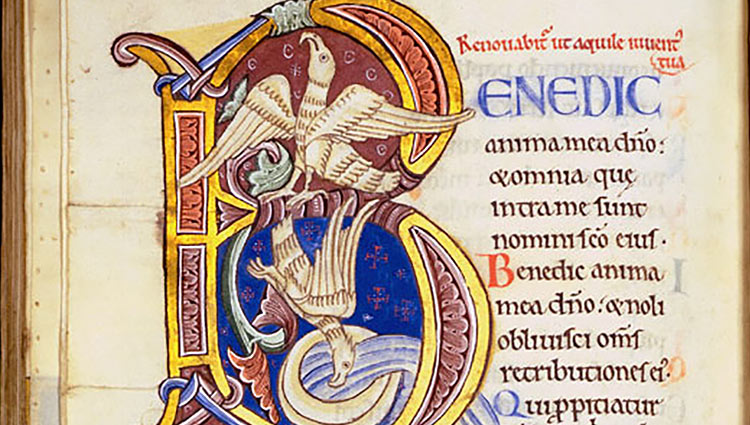 Renovabit̃ ut aquile iuvent᷒
tua
BENEDIC
anima mea dño:
& omnia quę
intra me sunt
nomini sc̄o eius·
Benedic anima
mea dño: & noli
oblivisci om̄s
retributiones ei᷒·
Qui ꝓpitiatur